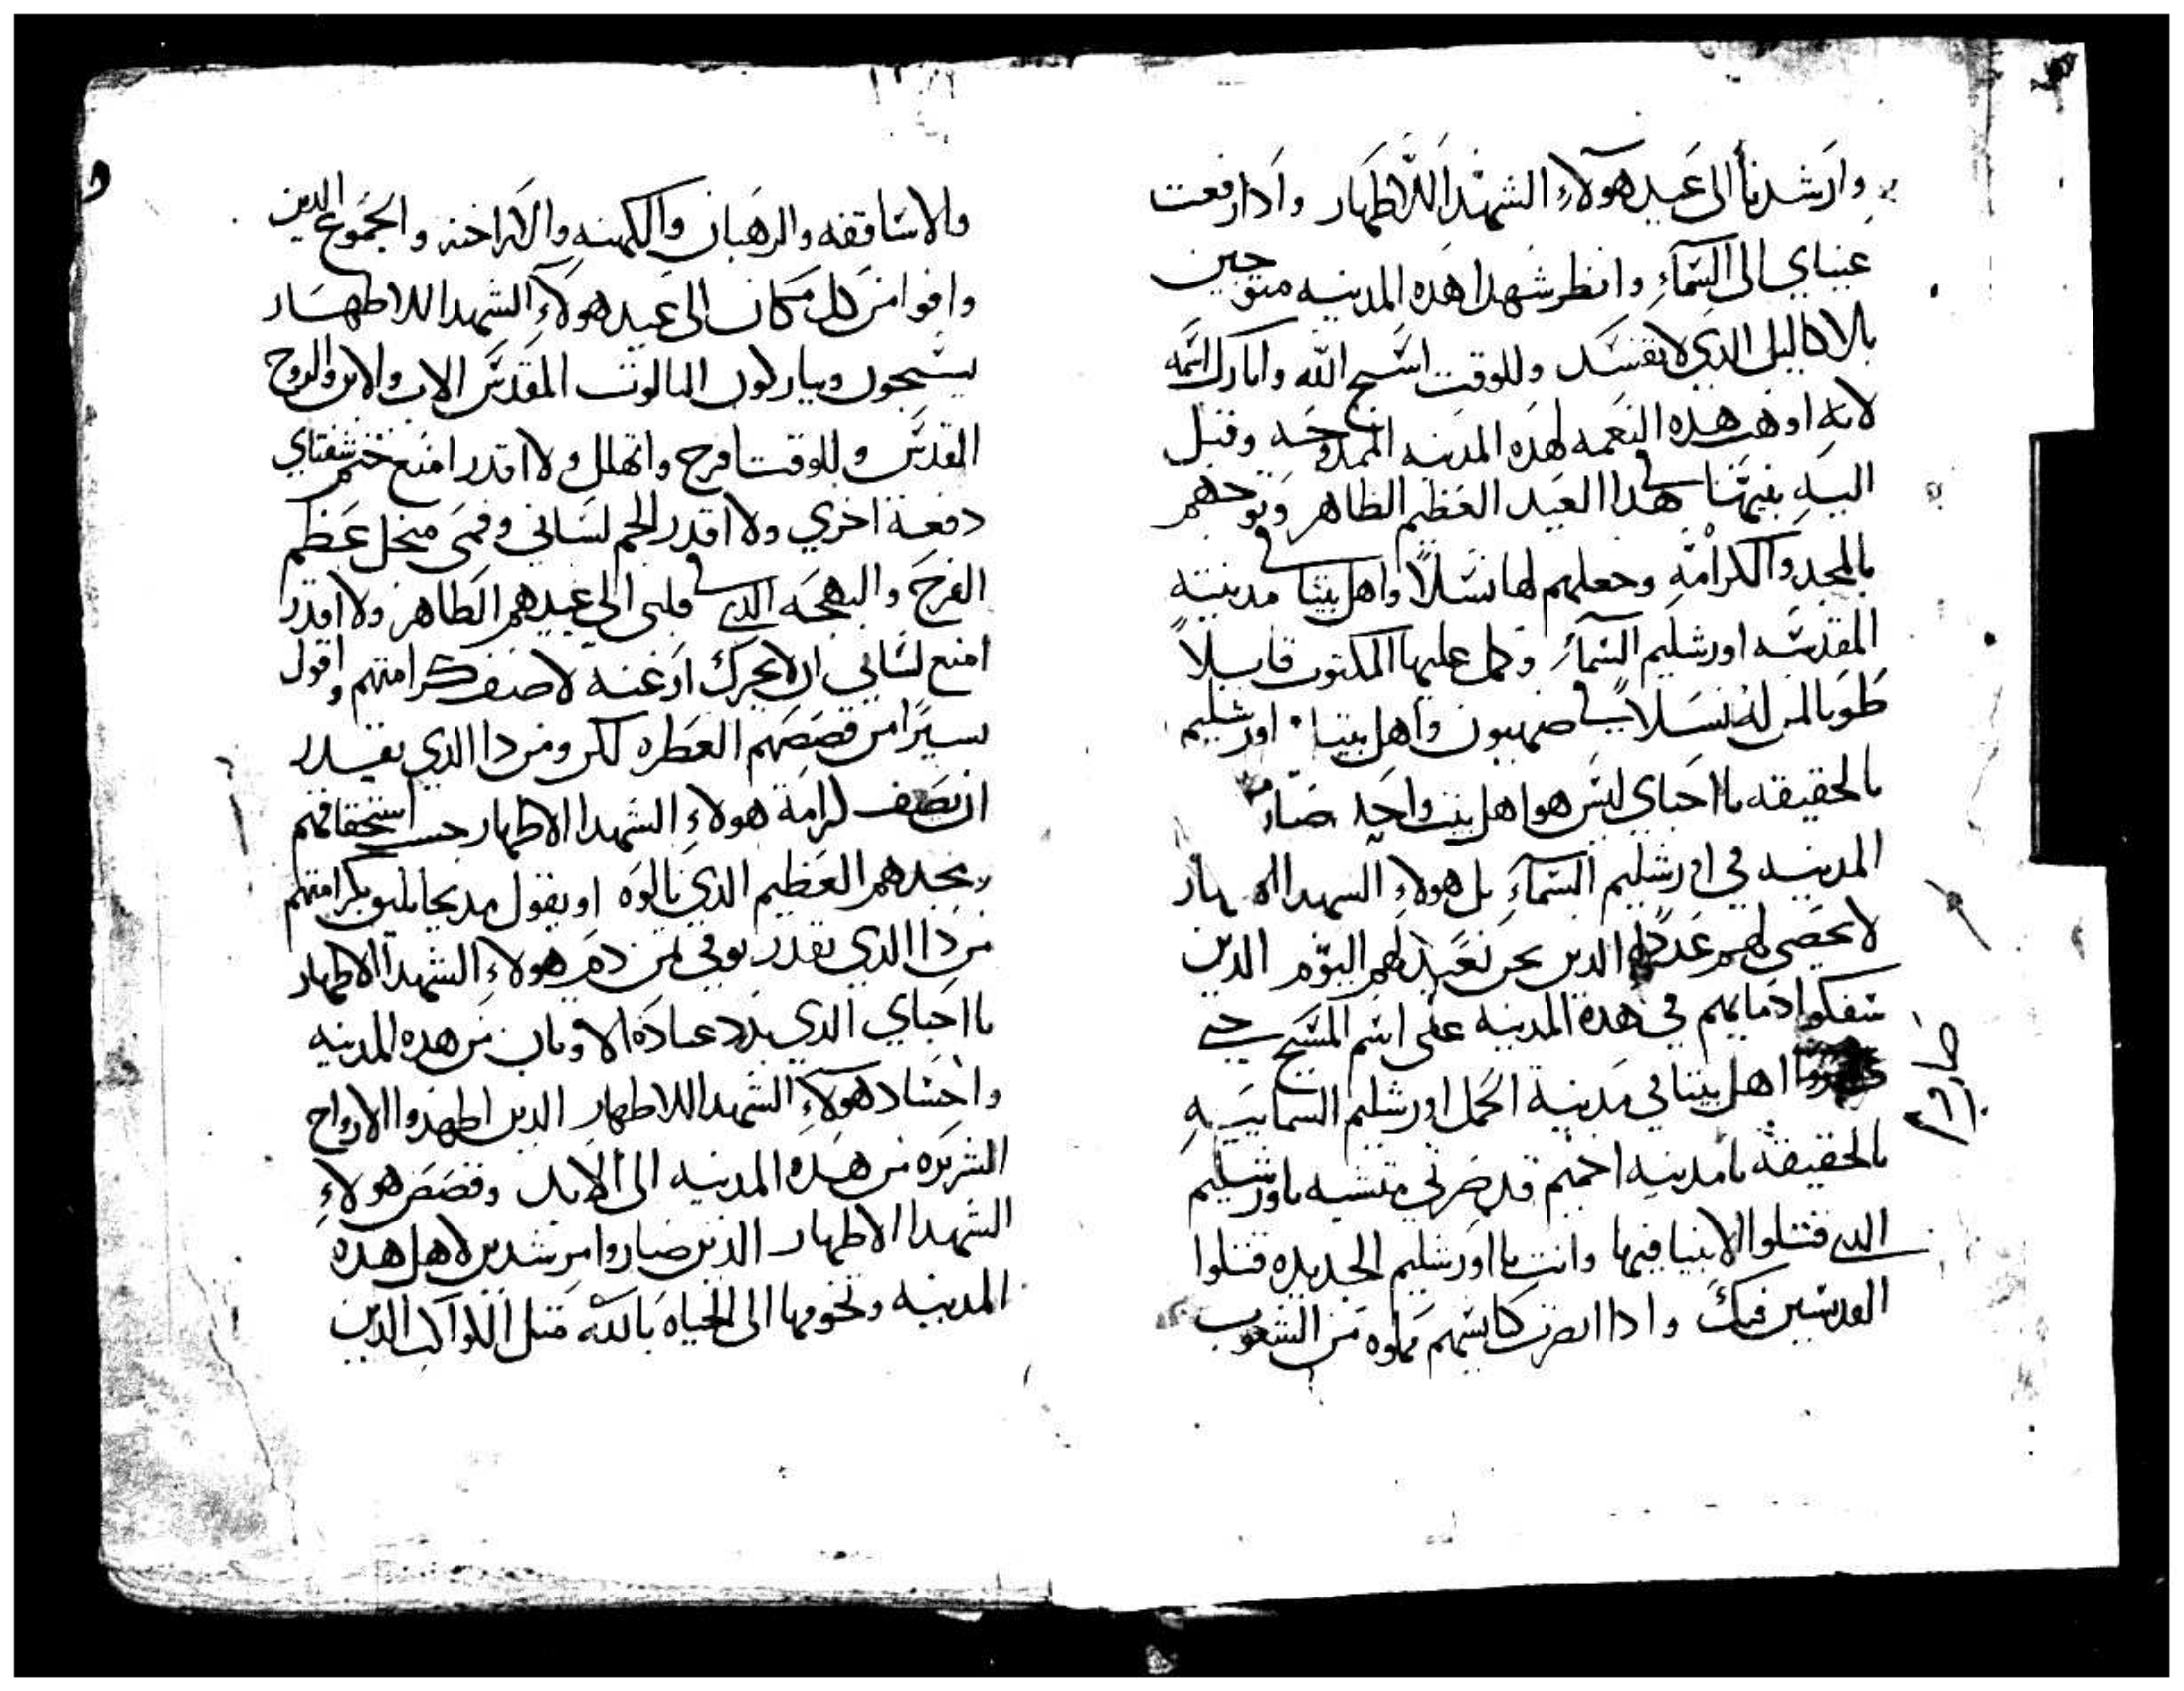 وارشدنا الى عيد هولاء الشهدا الاطهار واذا رفعت
عيناي الى السماء وانظر شهدا هذه المدينه متوجين
بالاكاليل الذي لا تفسد وللوقت اسبح الله وابارك اسمه
لانه اوهب هذه النعمه لهذه المدينه الممدوحه وقبل
اليه بنيتنا في هذا العيد العظيم الطاهر وتوجهم
بالمجد والكرامه وجعلهم لها نسلاً واهل بيتا في مدينته
المقدسه اورشليم السماء وكمل عليها المكتوب قايلاً
طوبا لمن له نسلاً في صهيون واهل بيتا اورشليم
بالحقيقه يا احباي ليس هو اهل بيت واحد صار
المدينه في اورشليم السماء بل هولاء الشهدا الاطهار
لا يحصى لهم عدد الدين نحن نعيد لهم اليوم الدين
سفكوا دمايهم في هذه المدينه على اسم المسيح حتى
صاروا
اهل بيتا في مدينة الحمل اورشليم السماييه
بالحقيقه يا مدينه اخميم قد صرتي متشبه باورشليم
الدي قتلوا الانبيا فيها وانت يا اورشليم الجديده قتلوا
القديسين فيك وادا ابصرت كنايسهم مملوه من الشعوب
والاساقفه والرهبان والكهنه والاراخنه والجموع الدين
وافوا من كل مكان الى عيد هولاء الشهدا الاطهار
يسبحون ويباركون التالوت المقدس الاب والابن والروح
القدس وللوقت افرح واتهلل ولا اقدر امنع ختم شفتاي
دفعة اخري ولا اقدر الجم لساني وفمي من اجل عظم
الفرح والبهجه الدي في قلبي الي عيدهم الطاهر ولا اقدر
امنع لساني ان لا يحرك ارغنه لاصف كرامتهم واقول
يسيرا من قصصهم العطره لكن ومن دا الدي يقدر
ان يصف كرامة هولاء الشهدا الاطهار حسب استحقاقهم
ومجدهم العظيم الدي نالوه او يقول مديحا يليق بكرامتهم
من دا الدي يقدر يوفي تمن دم هولاء الشهدا الاطهار
يا احباي الدي بدد عبادة الاوتان من هده المدينه
واجساد هولاء الشهدا الاطهار الدين اطهدوا الارواح
الشريره من هده المدينه الى الابد وقصص هولاء
الشهدا الاطهار الدين صاروا مرشدين لاهل هده
المدينه وتخومها الى الحياه بالله متل الكواكب الدين